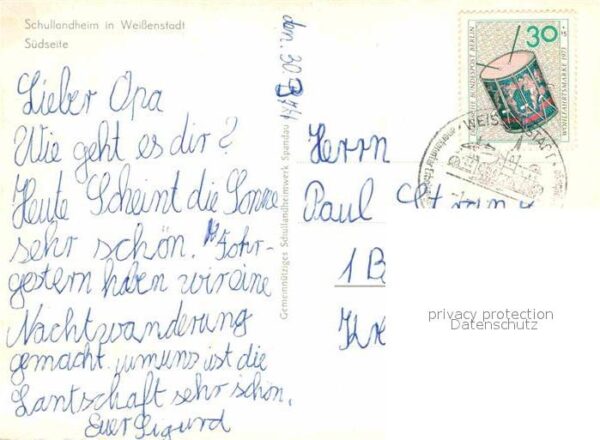 Schullandheim in Weißenstadt
Südseite
Lieber Opa
Wie geht es dir?
Heute Scheint die Sonne
sehr schön.
gestern haben wir eine
Nachtwanderung
gemacht. umuns ist die
Lantschaft sehr schön.
Euer Sigurd
Gemeinnütziges Schullandheimwerk Spandau
den. 30
30
DEUTSCHE BUNDESPOST BERLIN
WOHLFAHRTSMARKE 1973
WEISSENSTADT
Herrn
Paul
1 B
privacy protection
Datenschutz